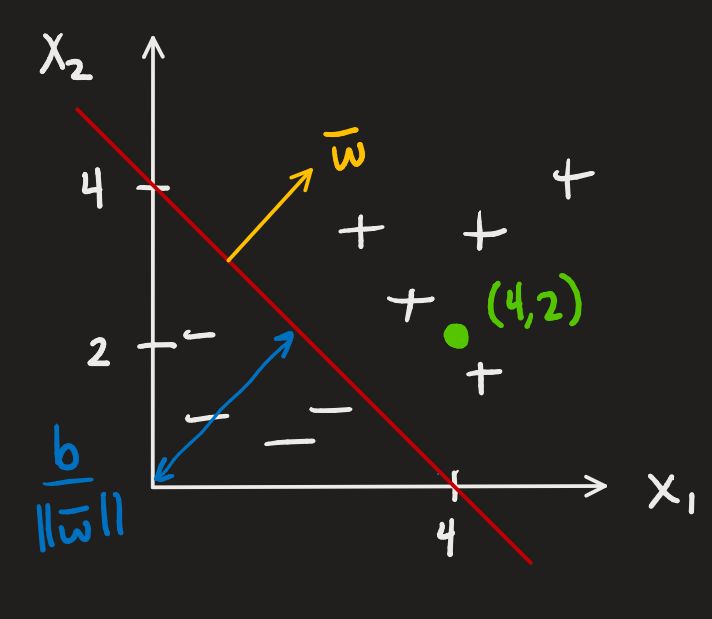 X₂
w̅
4
(4,2)
2
b
||w̅||
X₁
4